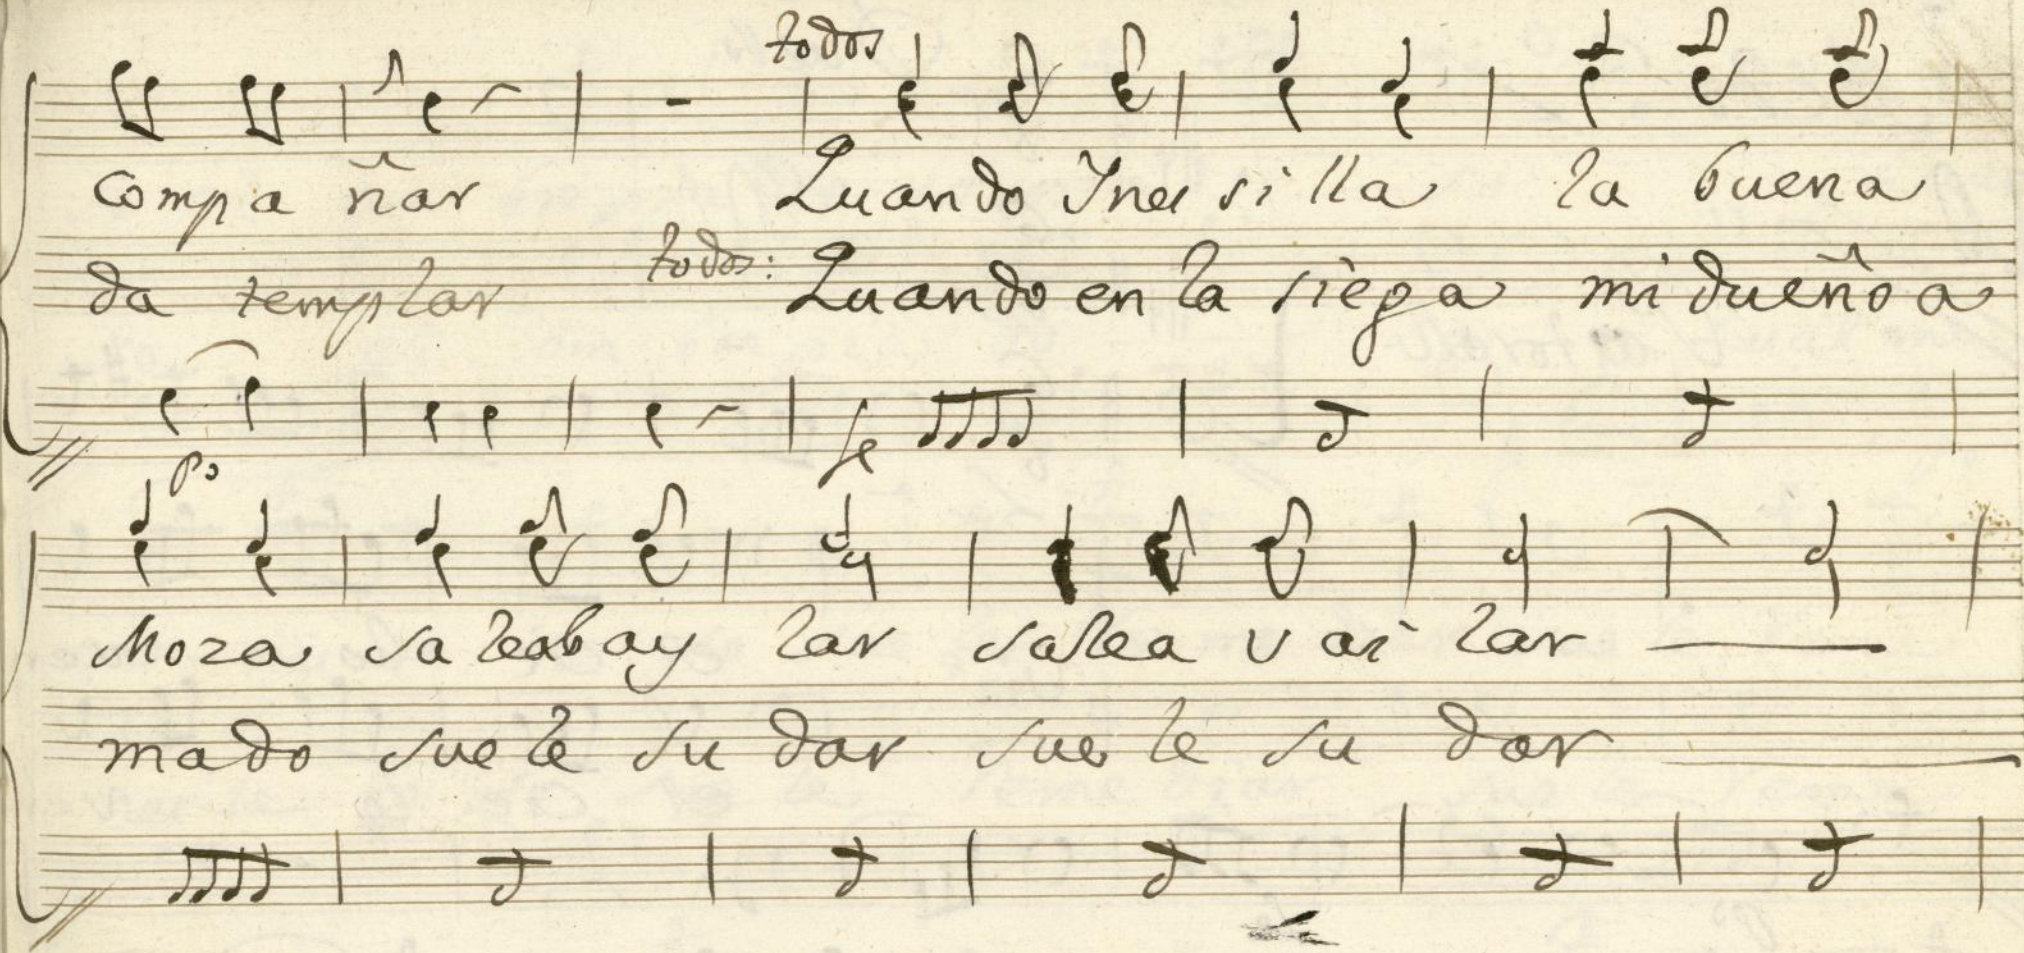 todos
compa ñar Quando Ynes si lla la buena
todos:
da templar Quando en la siega mi dueño a
po fe
Moza sa leabay lar salea vai lar
mado suele su dar suele su dar